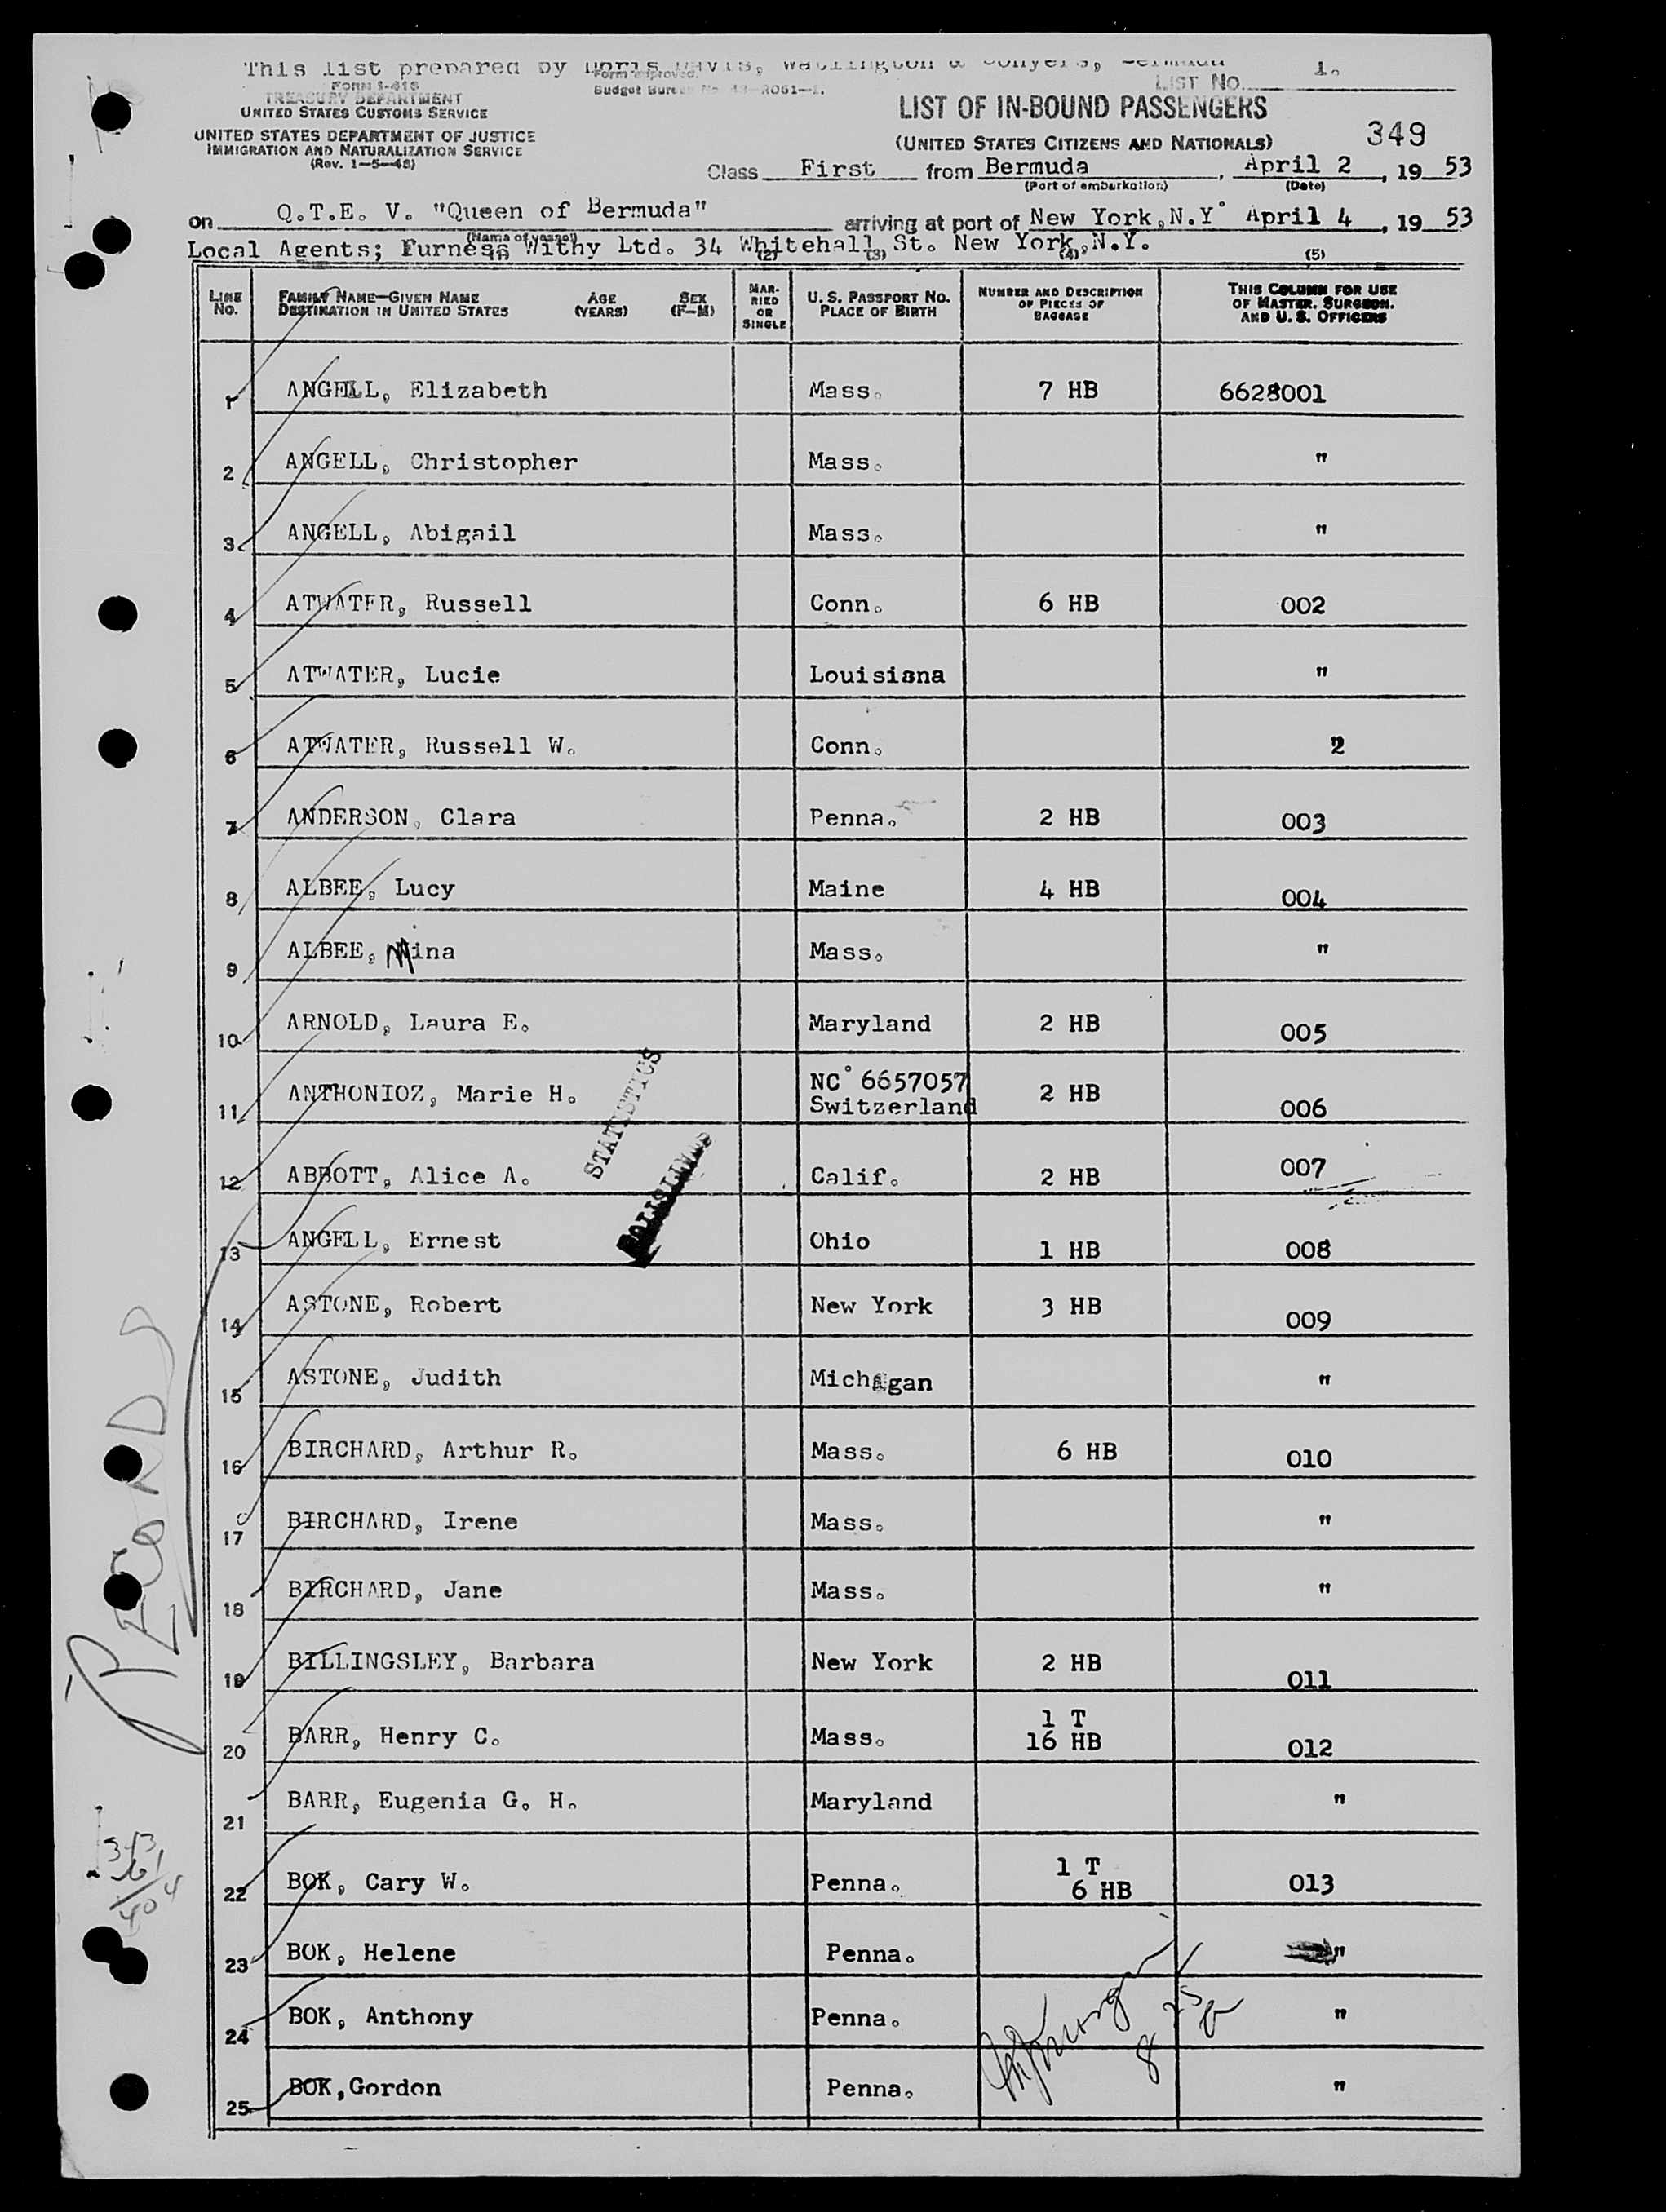 This list prepared by Doris Davis, Watlington & Conyers, Bermuda
Form approved.
Budget Bureau No. 43-R061-1.
LIST NO. 1.
FORM I-415
TREASURY DEPARTMENT
UNITED STATES CUSTOMS SERVICE
UNITED STATES DEPARTMENT OF JUSTICE
IMMIGRATION AND NATURALIZATION SERVICE
(Rev. 1-5-48)
LIST OF IN-BOUND PASSENGERS
(UNITED STATES CITIZENS AND NATIONALS)
349
Class First from Bermuda, April 2, 1953
(Port of embarkation) (Date)
on Q.T.E. V. "Queen of Bermuda" arriving at port of New York, N.Y. April 4, 1953
(Name of vessel)
Local Agents; Furness Withy Ltd. 34 Whitehall St. New York, N.Y.
(1) (2) (3) (4) (5)
LINE NO. FAMILY NAME—GIVEN NAME DESTINATION IN UNITED STATES AGE (YEARS) SEX (F—M) MARRIED OR SINGLE U. S. PASSPORT NO. PLACE OF BIRTH NUMBER AND DESCRIPTION OF PIECES OF BAGGAGE THIS COLUMN FOR USE OF MASTER, SURGEON, AND U. S. OFFICERS
1 ANGELL, Elizabeth Mass. 7 HB 6628001
2 ANGELL, Christopher Mass. "
3 ANGELL, Abigail Mass. "
4 ATWATER, Russell Conn. 6 HB 002
5 ATWATER, Lucie Louisiana "
6 ATWATER, Russell W. Conn. 2
7 ANDERSON, Clara Penna. 2 HB 003
8 ALBEE, Lucy Maine 4 HB 004
9 ALBEE, Mina Mass. "
10 ARNOLD, Laura E. Maryland 2 HB 005
11 ANTHONIOZ, Marie H. NC° 6657057 Switzerland 2 HB 006
STATISTICS
12 ABBOTT, Alice A. Calif. 2 HB 007
13 ANGELL, Ernest Ohio 1 HB 008
14 ASTONE, Robert New York 3 HB 009
15 ASTONE, Judith Michigan "
16 BIRCHARD, Arthur R. Mass. 6 HB 010
17 BIRCHARD, Irene Mass. "
18 BIRCHARD, Jane Mass. "
19 BILLINGSLEY, Barbara New York 2 HB 011
20 BARR, Henry C. Mass. 1 T 16 HB 012
21 BARR, Eugenia G. H. Maryland "
22 BOK, Cary W. Penna. 1 T 6 HB 013
23 BOK, Helene Penna. "
24 BOK, Anthony Penna. "
25 BOK, Gordon Penna. "
RECORDS
343
61
404